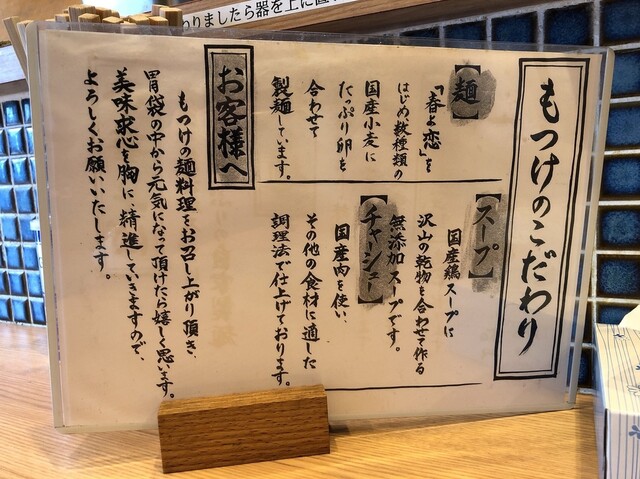 りましたら器を上に置
もつけのこだわり
【麺】
「春よ恋」を
はじめ数種類の
国産小麦に
たっぷり卵を
合わせて
製麺しています。
【スープ】
国産鶏スープに
沢山の乾物を合わせて作る
無添加スープです。
【チャーシュー】
国産肉を使い、
その他の食材に適した
調理法で仕上げております。
お客様へ
もつけの麺料理をお召し上がり頂き、
胃袋の中から元気になって頂けたら嬉しく思います。
美味求心を胸に、精進していきますので、
よろしくお願いいたします。